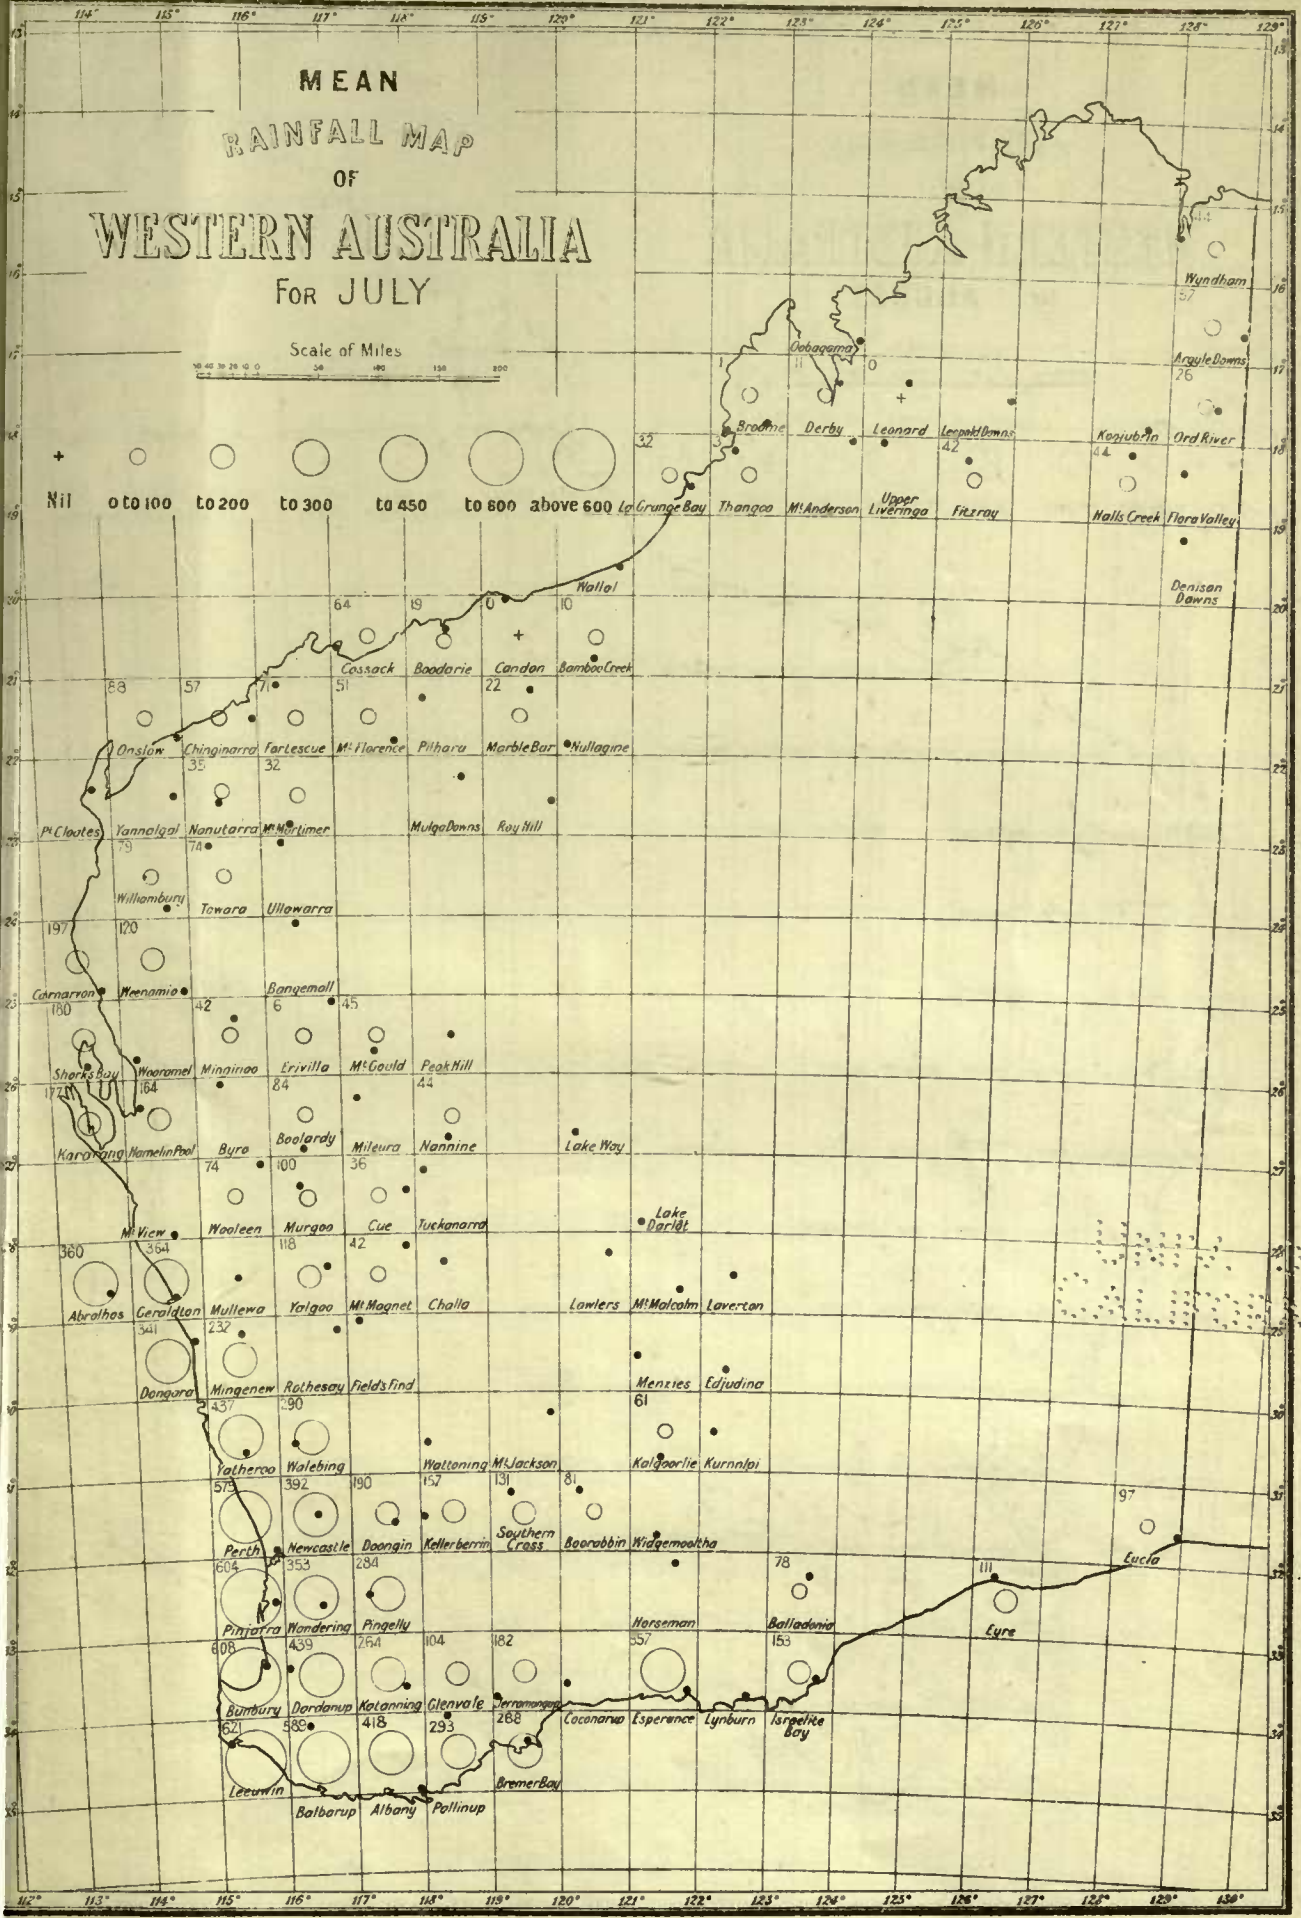 114° 115° 116° 117° 118° 119° 120° 121° 122° 123° 124° 125° 126° 127° 128° 129°
MEAN
RAINFALL MAP
OF
WESTERN AUSTRALIA
FOR JULY
Scale of Miles
50 40 30 20 10 0 50 100 150 200
Nil 0 to 100 to 200 to 300 to 450 to 600 above 600
44
Wyndham
57
Oobagama
Argyle Downs
1 11 0 26
Broome Derby Leonard Leopold Downs Konjubrin Ord River
32 3 42 44
La Grange Bay Thangoo Mt Anderson Upper Liveringa Fitzroy Halls Creek Flora Valley
Wallal
Denison Downs
64 19 0 10
Cossack Boodarie Condon Bamboo Creek
88 57 71 51 22
Onslow Chinginarra Fortescue Mt Florence Pilbara Marble Bar Nullagine
35 32
Pt Cloates Yannalgal Nanutarra Mt Mortimer Mulga Downs Roy Hill
79 74
Williambury Towara Ullawarra
197 120
Carnarvon Weenamia Bangemall
180 42 6 45
Sharks Bay Wooramel Minninoo Erivilla Mt Gould Peak Hill
177 164 84 44
Kararang Hamelin Pool Byro Boolardy Mileura Nannine Lake Way
74 100 36
Mt View Wooleen Murgoo Cue Tuckanarra Lake Darlôt
360 364 118 42
Abrolhos Geraldton Mullewa Yalgoo Mt Magnet Challa Lawlers Mt Malcolm Laverton
341 232
Dongara Mingenew Rothesay Field's Find Menzies Edjudina
437 290 61
Yatheroo Walebing Wattoning Mt Jackson Kalgoorlie Kurnalpi
575 392 190 157 131 81 97
Perth Newcastle Doongin Kellerberrin Southern Cross Boorabbin Widgemooltha Eucla
604 353 284 78 111
Pinjarra Wandering Pingelly Norseman Balladonia Eyre
608 439 264 104 182 357 153
Bunbury Dardanup Katanning Glenvale Jerramongup Coconarup Esperance Lynburn Israelite Bay
621 589 418 293 268
Leeuwin Balbarup Albany Pallinup Bremer Bay
112° 113° 114° 115° 116° 117° 118° 119° 120° 121° 122° 123° 124° 125° 126° 127° 128° 129° 130°